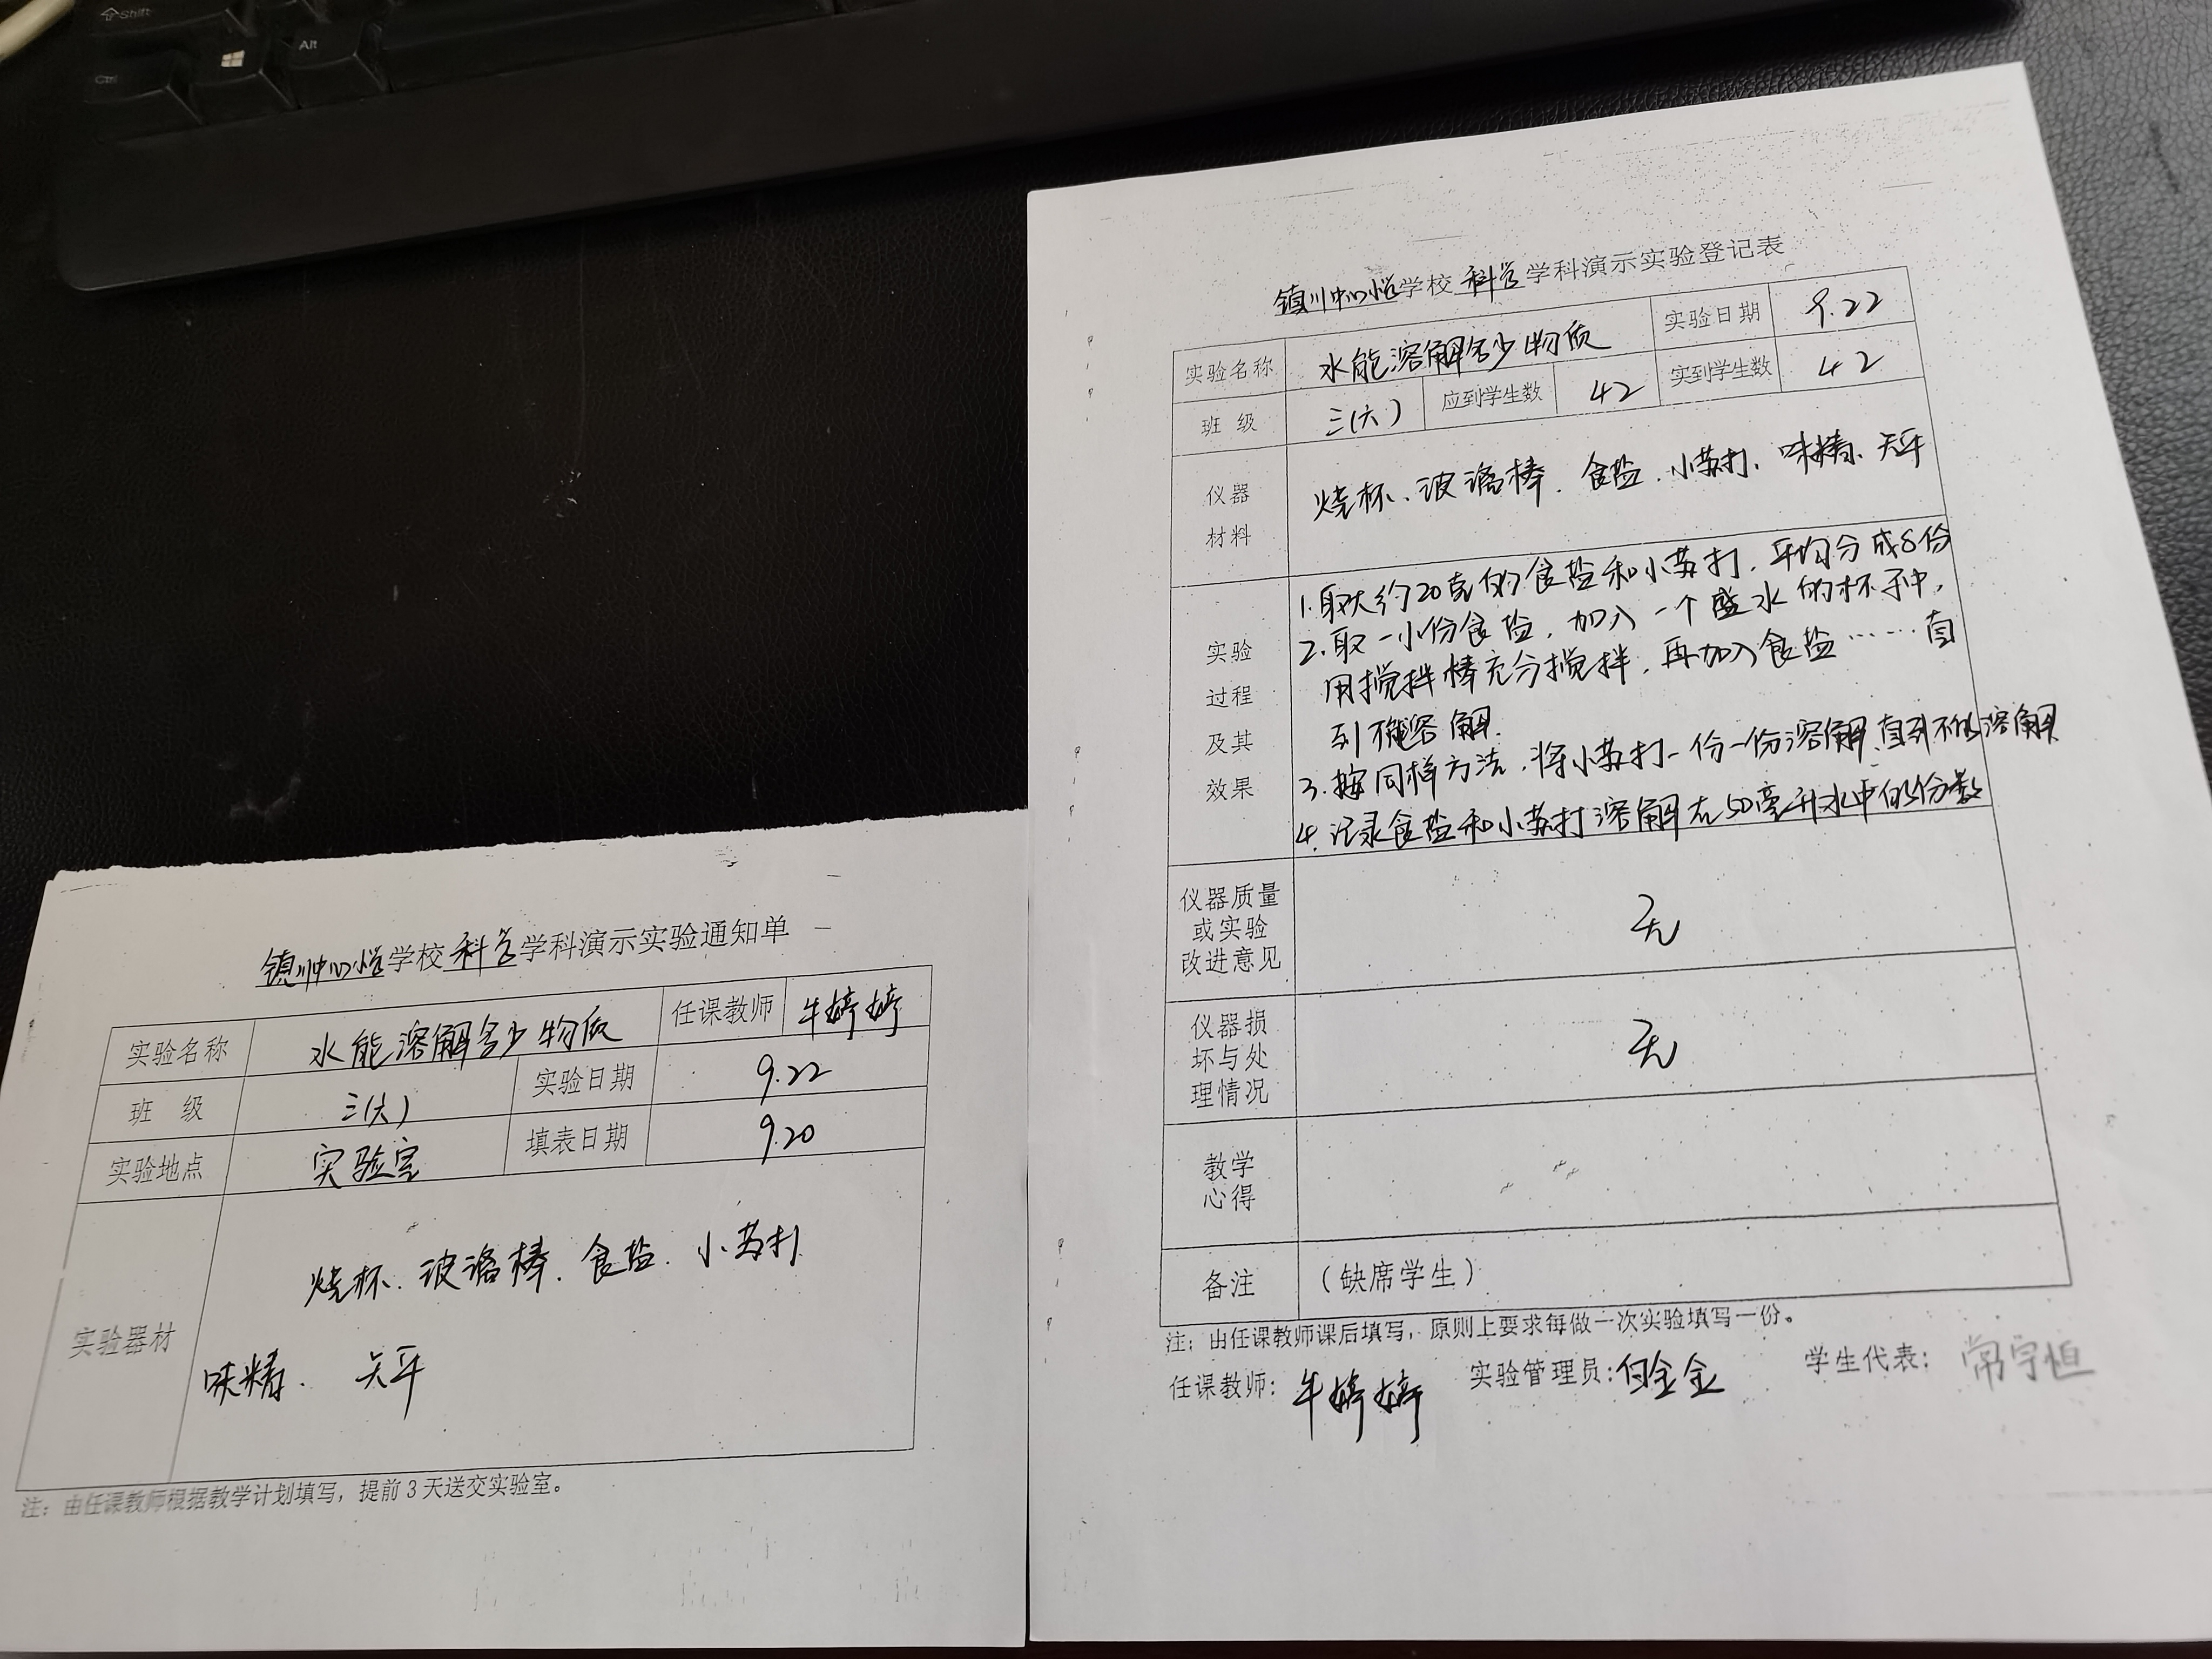 Shift
Ctrl
Alt
镇川中心小学学校科学学科演示实验通知单
实验名称 水能溶解多少物质 任课教师 牛婷婷
班 级 三(六) 实验日期 9.22
实验地点 实验室 填表日期 9.20
实验器材
烧杯、玻璃棒、食盐、小苏打
味精、天平
注：由任课教师根据教学计划填写，提前3天送交实验室。
镇川中心小学学校科学学科演示实验登记表
实验名称 水能溶解多少物质 实验日期 9.22
班 级 三(六) 应到学生数 42 实到学生数 42
仪器
材料
烧杯、玻璃棒、食盐、小苏打、味精、天平
实验
过程
及其
效果
1.取大约20克的食盐和小苏打，平均分成8份
2.取一小份食盐，加入一个盛水的杯子中，
用搅拌棒充分搅拌，再加入食盐……直
到不能溶解.
3.按同样方法，将小苏打一份一份溶解，直到不能溶解
4.记录食盐和小苏打溶解在50毫升水中的份数
仪器质量
或实验
改进意见
无
仪器损
坏与处
理情况
无
教学
心得
备注 （缺席学生）
注：由任课教师课后填写，原则上要求每做一次实验填写一份。
任课教师：牛婷婷 实验管理员：白金金 学生代表：常宇恒